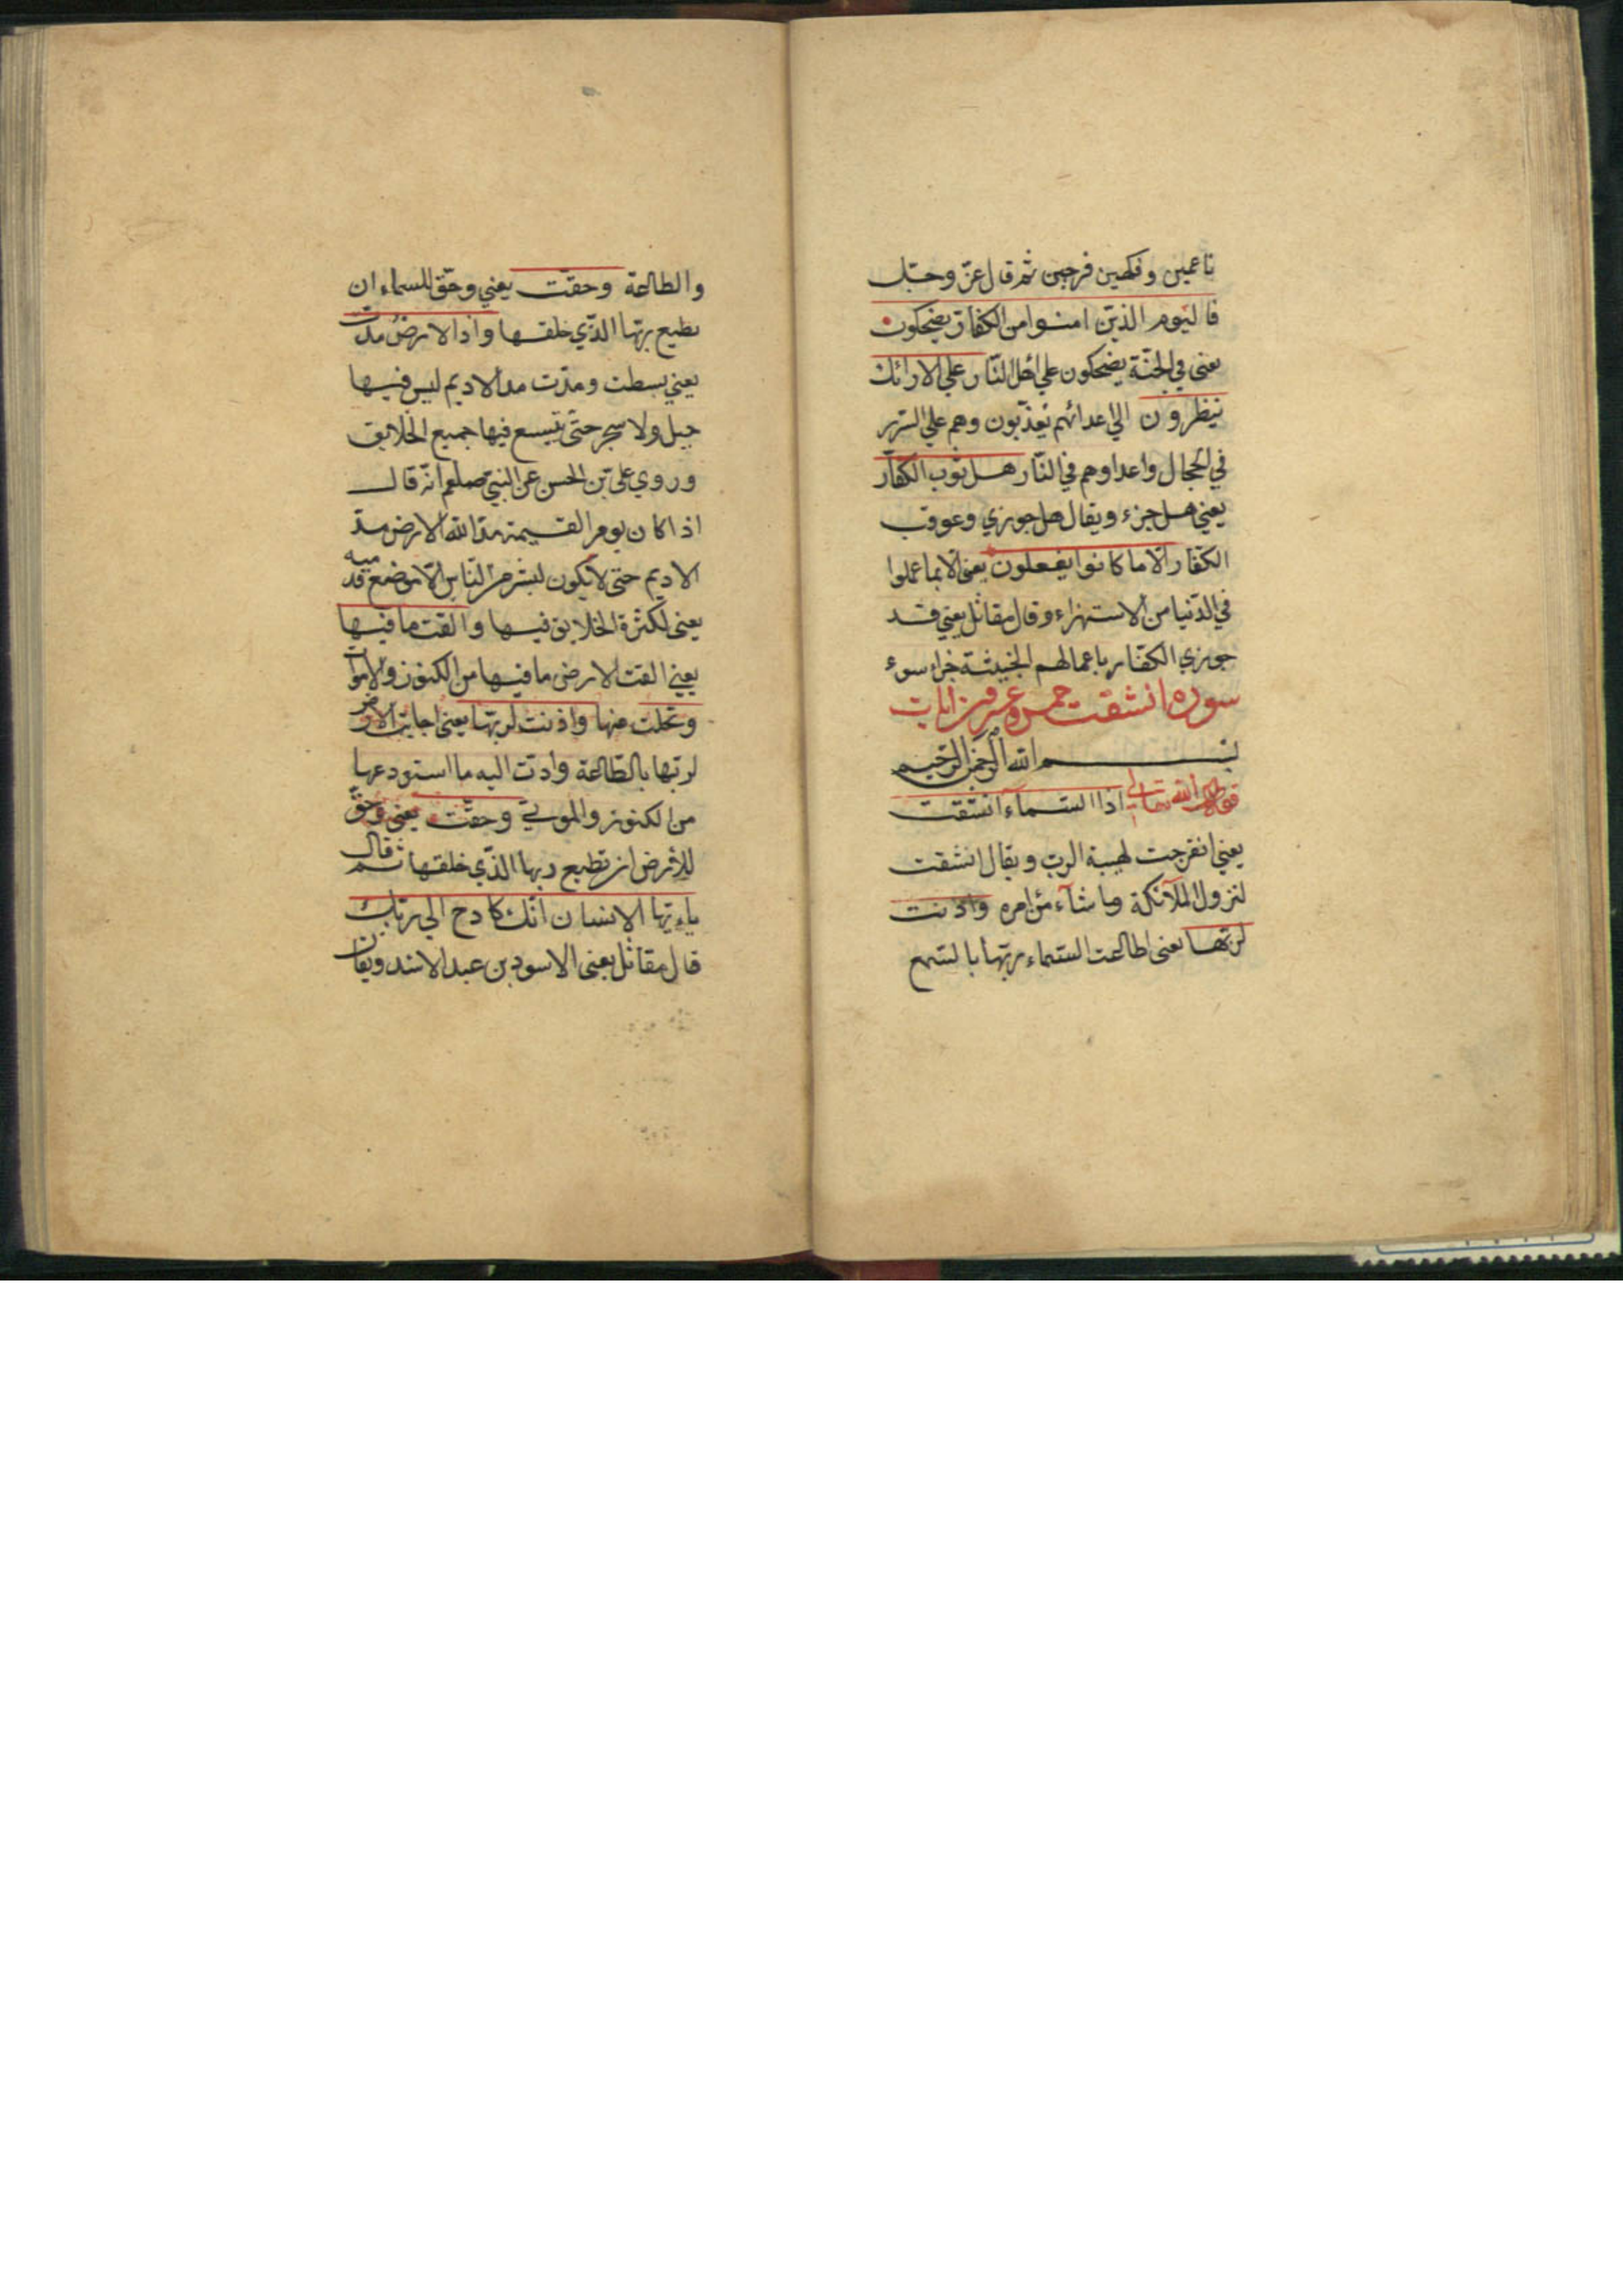 ناعمين وفكهين فرحين ثم قال عزّ وجلّ
فاليوم الذين امنوا من الكفار يضحكون
يعنى في الجنّة يضحكون على اهل النّار على الارائك
ينظرون الى اعدائهم يعذّبون وهم على السّرير
في الحجال واعداوهم في النّار هل ثوب الكفّار
يعني هل جزء ويقال هل جوزي وعوقب
الكفّار الّا ما كانوا يفعلون يعنى الّا بما عملوا
في الدّنيا من الاستهزاء وقال مقاتل يعني قد
جوزي الكفّار باعمالهم الخبيثة جزاء سوء
سوره انشقت خمس وعشرون ايات
بسم الله الرّحمن الرّحيم
قول الله تعالى اذا السّمآء انشقت
يعني انفرجت لهيبة الربّ ويقال انشقت
لنزول الملآئكة وما شآء من امره واذنت
لربّها يعنى اطاعت السّماء ربّها بالسّمع
والطاعة وحقّت يعني وحقّ للسماء ان
تطيع ربّها الذّي خلقها واذا الارض مدّت
يعني بسطت ومدّت مد الاديم ليس فيها
جبل ولا شجر حتّى يتّسع فيها جميع الخلايق
وروي على بن الحسن عن النبيّ صلعم انّه قال
اذا كان يوم القيمة مدّ الله الارض مدّ
الاديم حتى لا يكون لبشر من النّاس الّا موضع قدميه
يعنى لكثرة الخلايق فيها والقت ما فيها
يعني القت الارض ما فيها من الكنوز والاموات
وتخلت منها واذنت لربّها يعنى اجابت الارض
لربّها بالطّاعة وادّت اليه ما استودعها
من الكنوز والموتي وحقّت يعنى وحقّ
للأرض ان تطيع ربها الذّي خلقها ثم قال
ياءيّها الانسان انّك كادح الى ربّك
قال مقاتل يعنى الاسود بن عبد الاسد ويقال